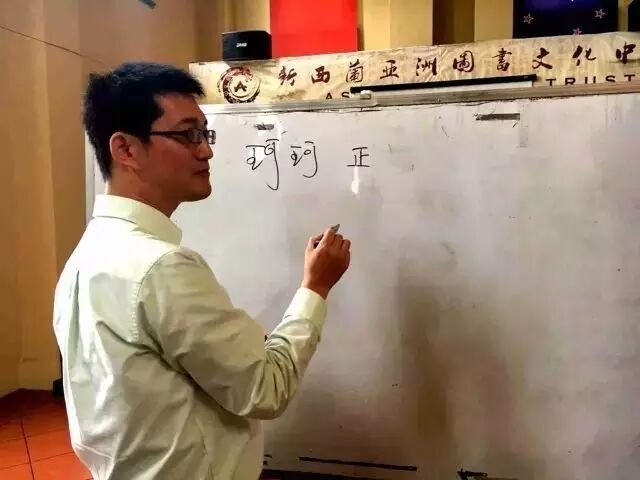 新西蘭亞洲圖書文化中
TRUST
珂珂 正